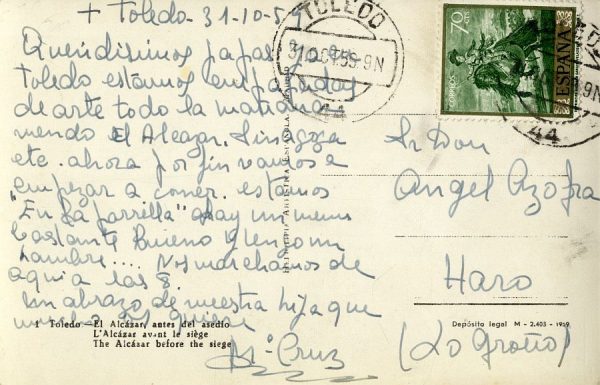 + Toledo-31-10-5
Queridisimos papas: Ya
Toledo estamos empapados
de arte todo la mañana
viendo el Alcazar, Sinagoga
etc. ahora por fin vamos a
empezar a comer. estamos
"En La parrilla" ahay un menu
bastante bueno y tengo un
hambre.... Nos marchamos de
aqui a las 8.
un abrazo de vuestra hija que
quiere
Mª Cruz
1 Toledo - El Alcázar, antes del asedio
L'Alcázar avant le siège
The Alcásar before the siege
ARTISTICA ESPAÑOLA
TOLEDO
31 OCT.59.9N
44
70 CTS
CORREOS
ESPAÑA
9N
44
Sr. Don
Angel Azofra
Haro
(Logroño)
Depósito legal M - 2.403 - 1959